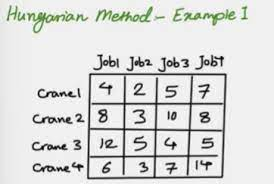 Hungarian Method - Example 1
Job1 Job2 Job3 Job4
Crane1 4 2 5 7
Crane 2 8 3 10 8
Crane 3 12 5 4 5
Crane 4 6 3 7 14